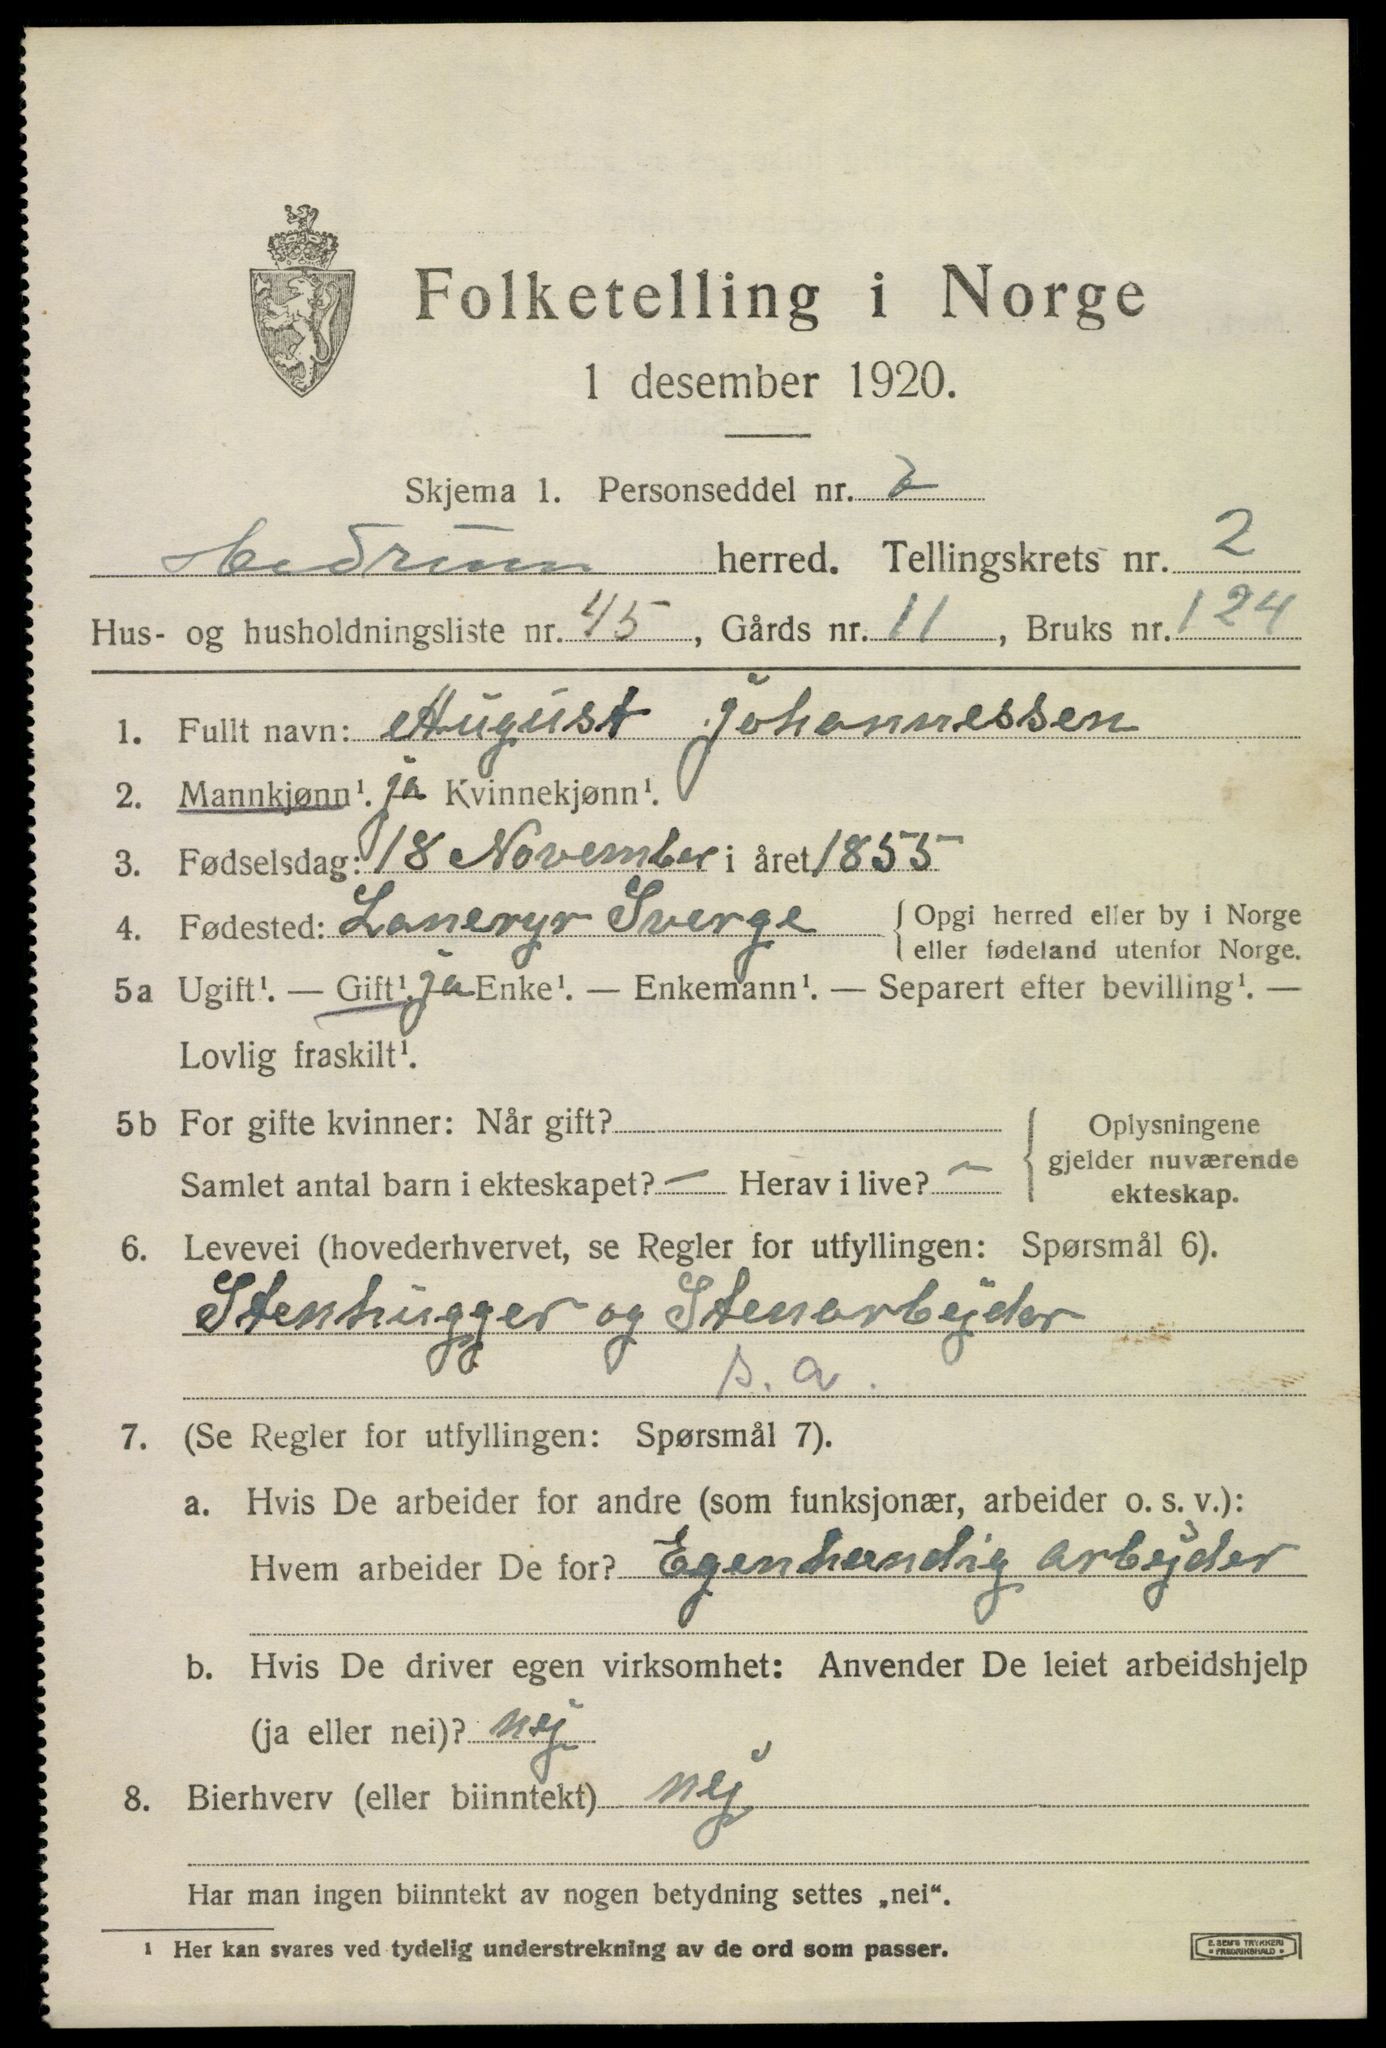 Folketelling i Norge
1 desember 1920.
Skjema 1. Personseddel nr. 2
Hedrum herred. Tellingskrets nr. 2
Hus- og husholdningsliste nr. 45, Gårds nr. 11, Bruks nr. 124
1. Fullt navn: August Johannessen
2. Mannkjønn¹. ja Kvinnekjønn¹.
3. Fødselsdag: 18 November i året 1855
4. Fødested: Laneryr Sverge { Opgi herred eller by i Norge
eller fødeland utenfor Norge.
5a Ugift¹. — Gift¹. ja Enke¹. — Enkemann¹. — Separert efter bevilling¹. —
Lovlig fraskilt¹.
5b For gifte kvinner: Når gift?
Samlet antal barn i ekteskapet? — Herav i live? —
{ Oplysningene
gjelder nuværende
ekteskap.
6. Levevei (hovederhvervet, se Regler for utfyllingen: Spørsmål 6).
Stenhugger og Stenarbejder
s. a.
7. (Se Regler for utfyllingen: Spørsmål 7).
a. Hvis De arbeider for andre (som funksjonær, arbeider o. s. v.):
Hvem arbeider De for? Egenhændig arbejder
b. Hvis De driver egen virksomhet: Anvender De leiet arbeidshjelp
(ja eller nei)? nej
8. Bierhverv (eller biinntekt) nej
Har man ingen biinntekt av nogen betydning settes „nei“.
¹ Her kan svares ved tydelig understrekning av de ord som passer.
E. SEM'S TRYKKERI
FREDRIKSHALD